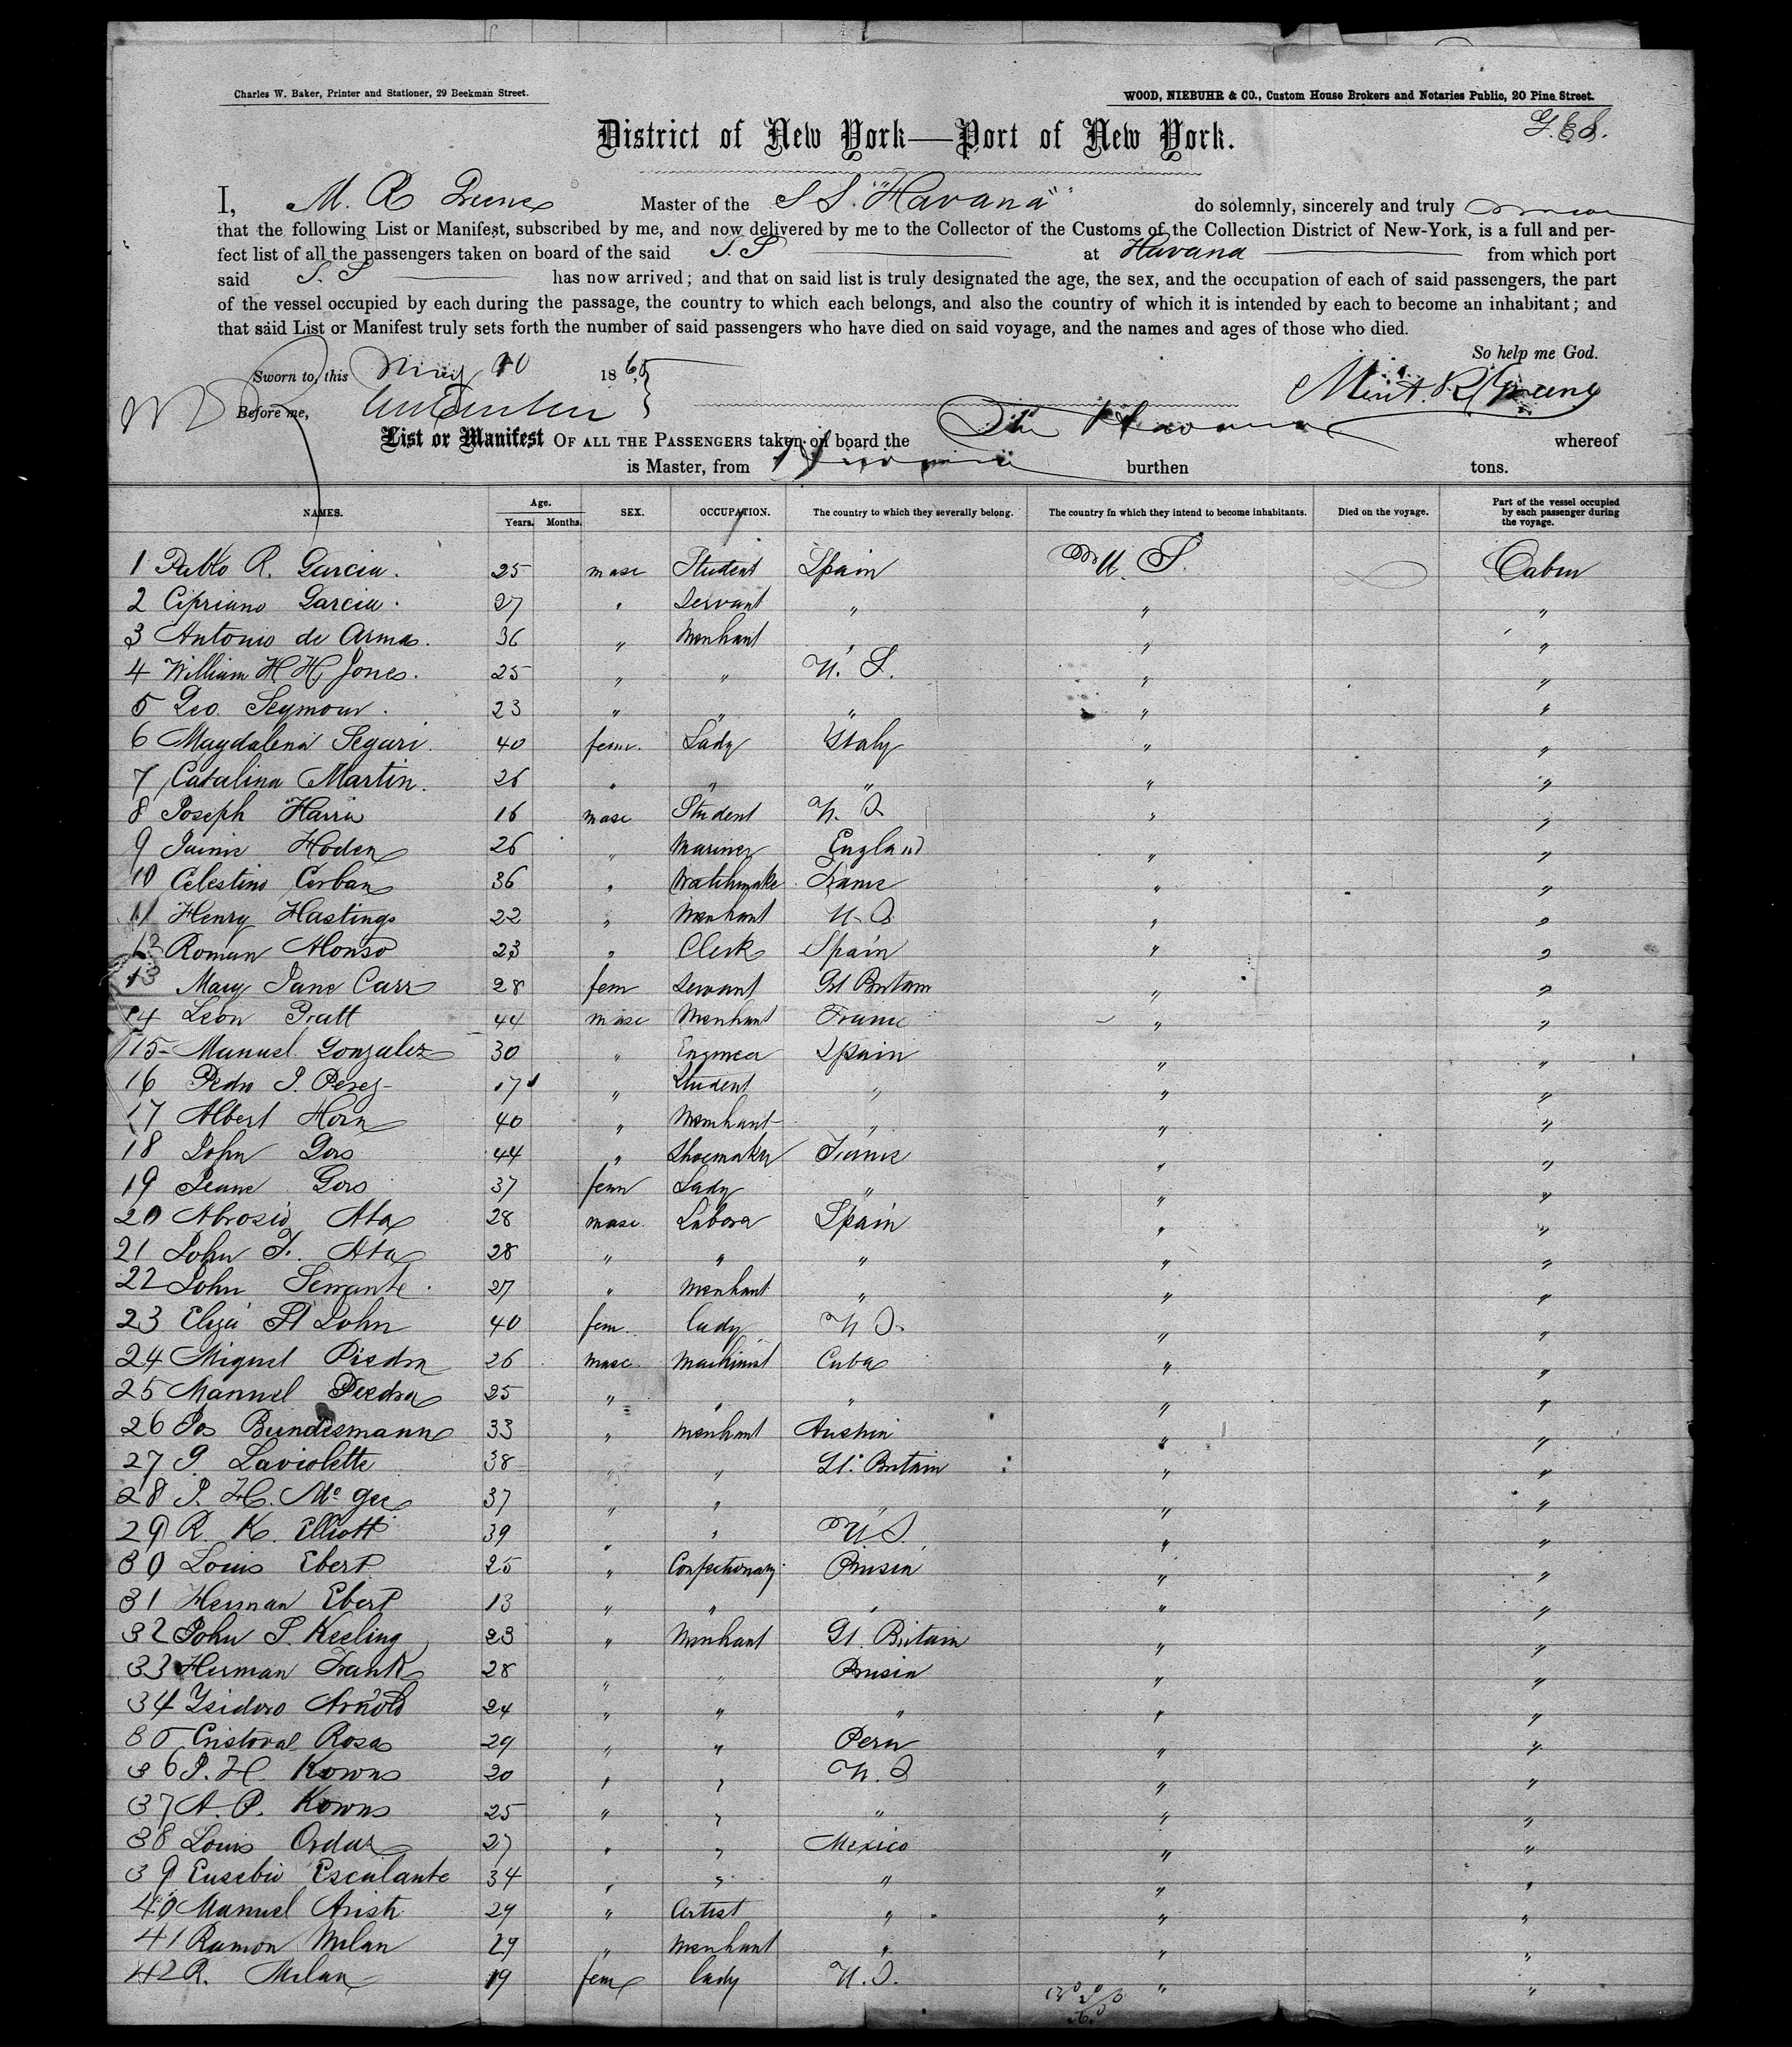 Charles W. Baker, Printer and Stationer, 29 Beekman Street.
WOOD, NIEBUHR & CO., Custom House Brokers and Notaries Public, 20 Pine Street.
District of New York—Port of New York.
I, M. R Greene Master of the S S. "Havana" do solemnly, sincerely and truly swear
that the following List or Manifest, subscribed by me, and now delivered by me to the Collector of the Customs of the Collection District of New-York, is a full and per-
fect list of all the passengers taken on board of the said S. S at Havana from which port
said S. S has now arrived; and that on said list is truly designated the age, the sex, and the occupation of each of said passengers, the part
of the vessel occupied by each during the passage, the country to which each belongs, and also the country of which it is intended by each to become an inhabitant; and
that said List or Manifest truly sets forth the number of said passengers who have died on said voyage, and the names and ages of those who died.
So help me God.
Sworn to, this May 10 186
Before me, R Greene
List or Manifest OF ALL THE PASSENGERS taken on board the The Havana whereof
is Master, from Havana burthen tons.
NAMES. Age. Years. Months. SEX. OCCUPATION. The country to which they severally belong. The country in which they intend to become inhabitants. Died on the voyage. Part of the vessel occupied by each passenger during the voyage.
1 Pablo R. Garcia. 25 masc Student Spain U. S. Cabin
2 Cipriano Garcia. 27 " Servant " " "
3 Antonio de Armas. 36 " Merchant " " "
4 William H. H. Jones. 25 " " U. S. " "
5 Geo. Seymour. 23 " " " " "
6 Magdalena Segari. 40 fem. Lady Italy " "
7 Catalina Martin. 26 " " " " "
8 Joseph Harris 16 masc Student U. S " "
9 Jaime Hoden 26 " Mariner England " "
10 Celestino Corban 36 " Watchmake France " "
11 Henry Hastings 22 " Merchant U. S. " "
12 Roman Alonso 23 " Clerk Spain " "
13 Mary Jane Carr 28 fem Servant Gt Britain " "
14 Leon Pratt 44 masc Merchant France " "
15 Manuel Gonzalez 30 " Engineer Spain " "
16 Pedro J. Perez 17 " Student " " "
17 Albert Horn 40 " Merchant " " "
18 John Gors 44 " Shoemaker France " "
19 Jeane Gors 37 fem Lady " " "
20 Abrosio Ata 28 masc. Labora Spain " "
21 John F. Ata 28 " " " " "
22 John Serrante. 27 " Merchant " " "
23 Eliza St John 40 fem. lady U S. " "
24 Miguel Piedra 26 masc Machinist Cuba " "
25 Manuel Piedra 25 " " " " "
26 Jos Bundesmann 33 " Merchant Austria " "
27 G. Laviolette 38 " " Gt. Britain " "
28 J. H. Mc gee 37 " " " " "
29 R. K. Elliott 39 " " U. S. " "
30 Louis Ebert 25 " Confectionary Prusia " "
31 Herman Ebert 13 " " " " "
32 John S. Keeling 23 " Merchant Gt. Britain " "
33 Herman Frank 28 " " Prusia " "
34 Ysidoro Arnold 24 " " " " "
35 Cristoval Rosas 29 " " Peru " "
36 J. H. Kowns 20 " " U. S " "
37 A. P. Kowns 25 " " " " "
38 Louis Ordaz 27 " " Mexico " "
39 Eusebio Escalante 34 " " " " "
40 Manuel Aristi 29 " Artist " " "
41 Ramon Milan 29 " Merchant " " "
42 R. Milan 19 fem lady U. S. " "